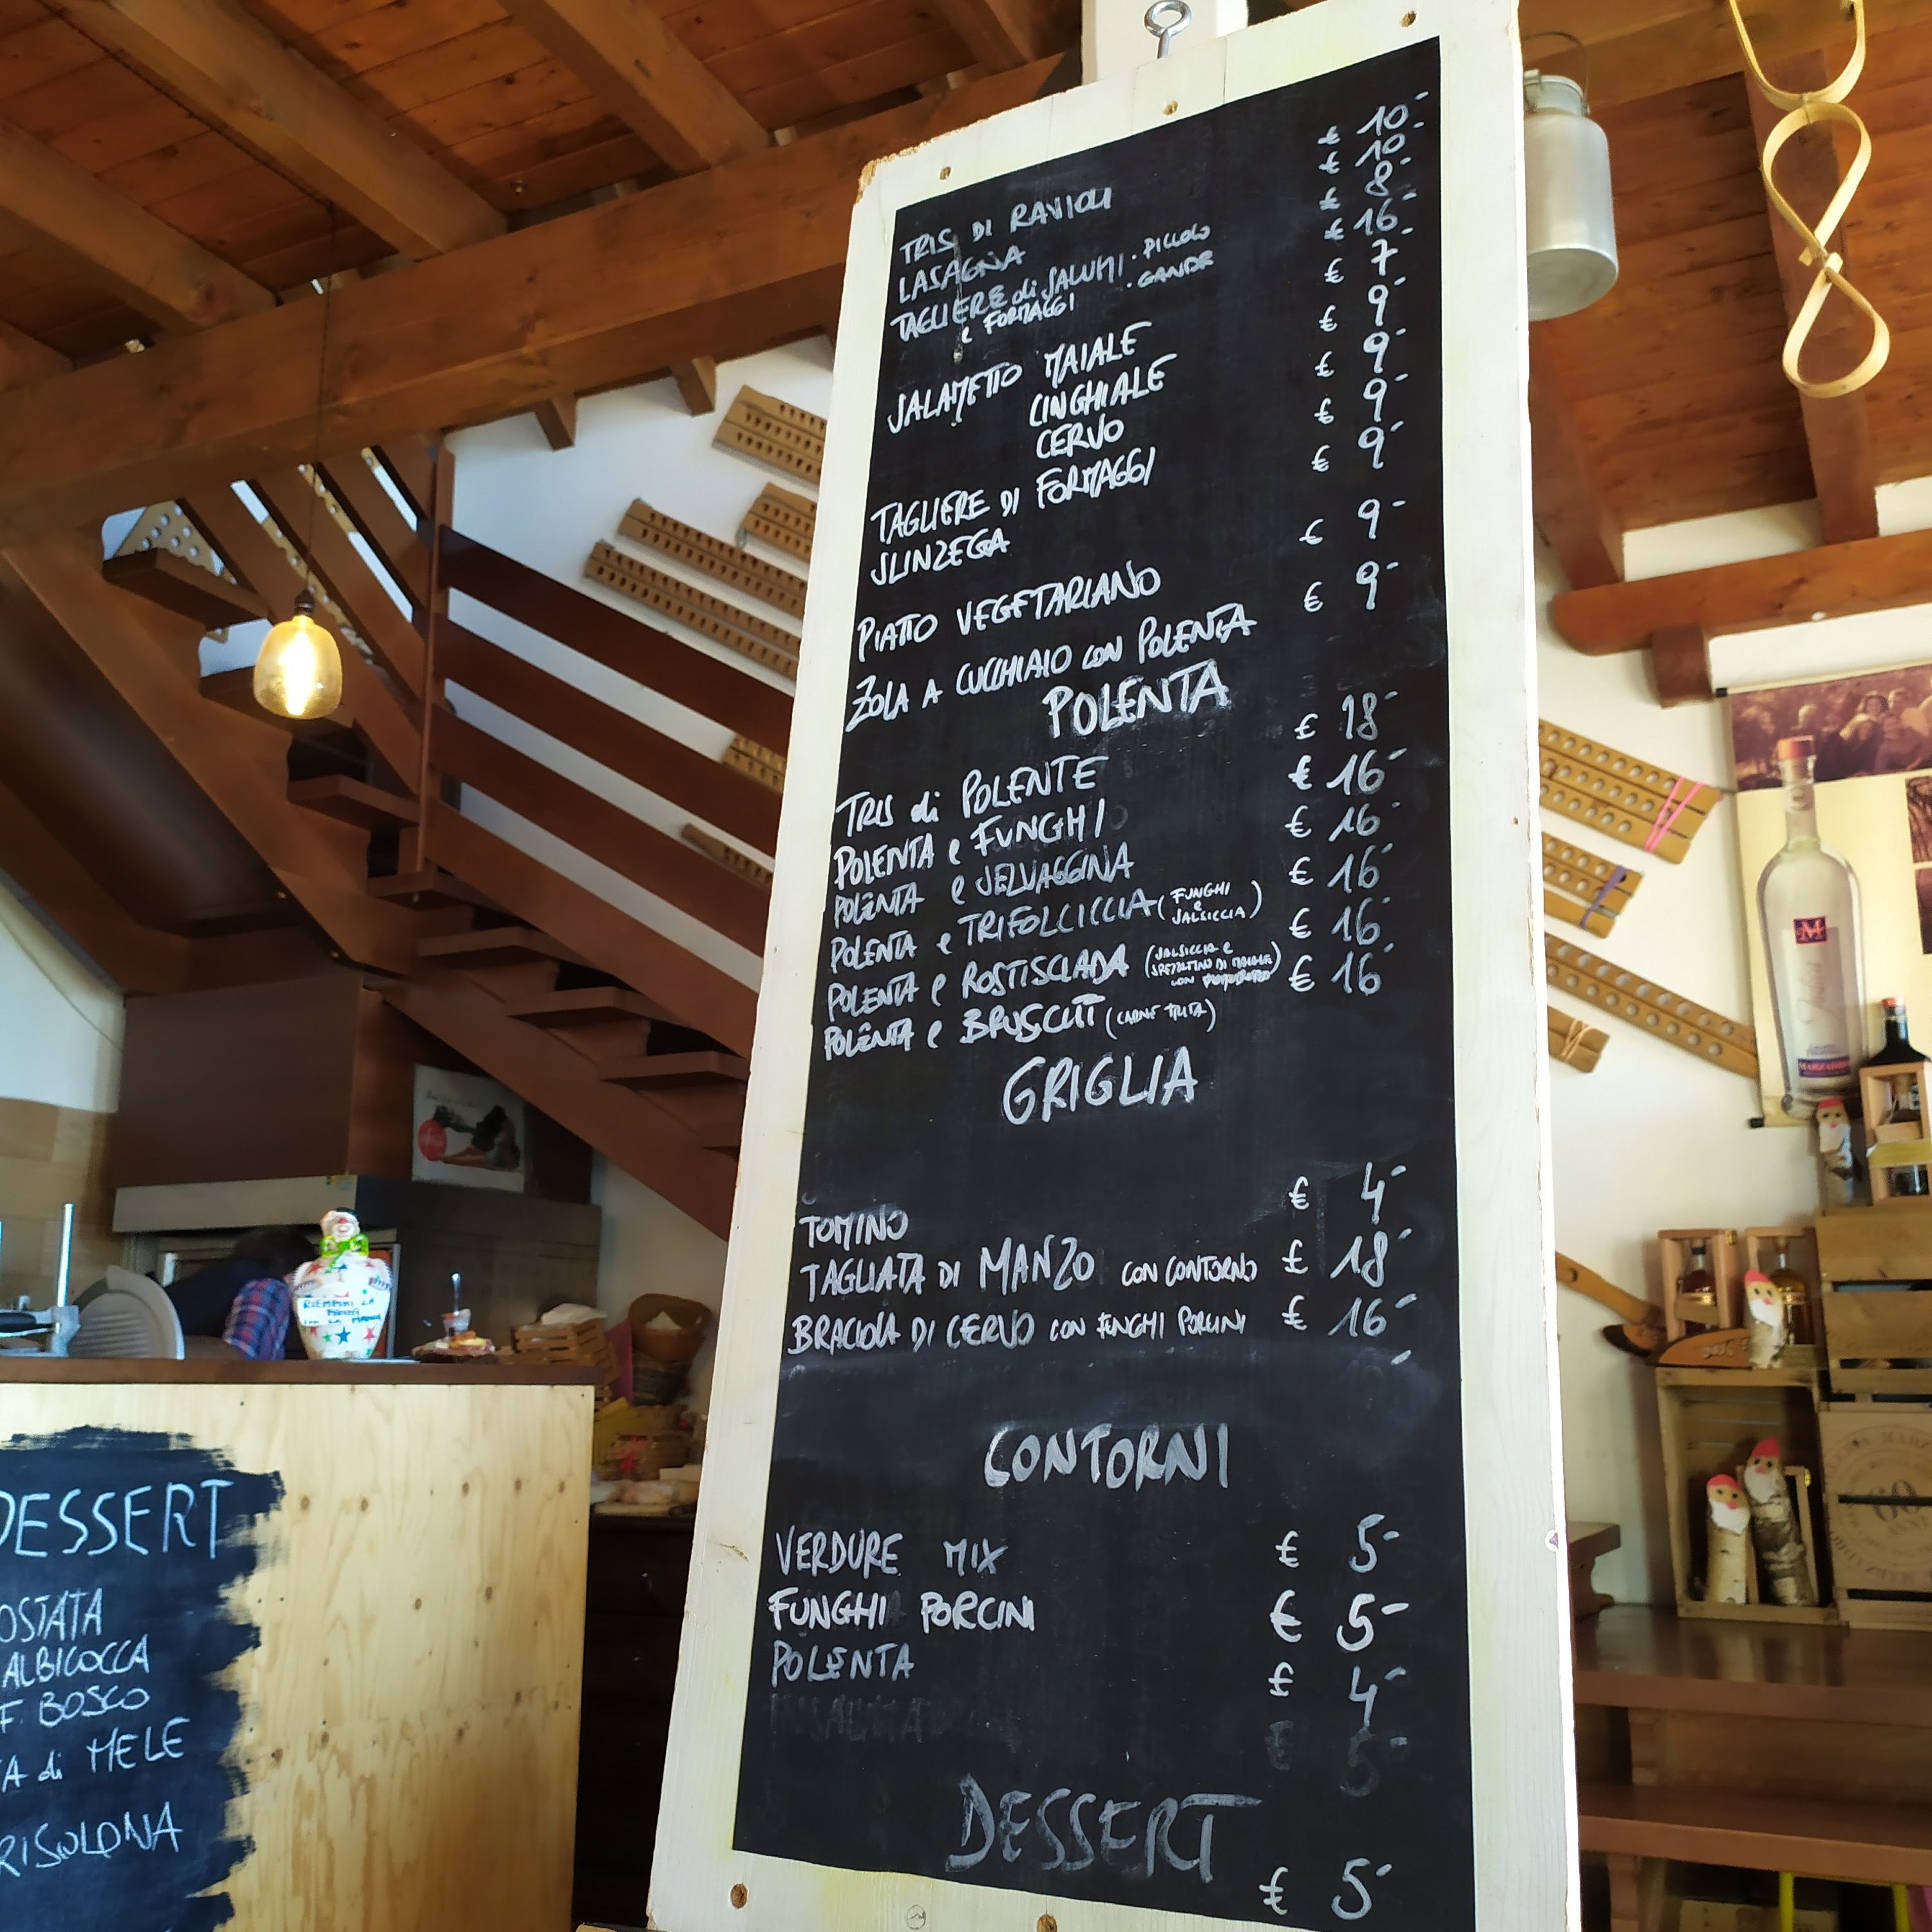 TRIS DI RAVIOLI € 10-
LASAGNA € 10-
TAGLIERE di SALUMI · PICCOLO € 8-
e FORMAGGI · GANDE € 16-
SALAMETTO MAIALE € 7-
CINGHIALE € 9-
CERVO € 9-
TAGLIERE DI FORMAGGI € 9-
SLINZEGA € 9-
PIATTO VEGETARIANO € 9-
ZOLA A CUCCHIAIO CON POLENTA € 9-
POLENTA
TRIS di POLENTE € 18-
POLENTA e FUNGHI € 16-
POLENTA e SELVAGGINA € 16-
POLENTA e TRIFOLCICCIA (FUNGHI e SALSICCIA) € 16-
POLENTA e ROSTISCIADA (SALSICCIA e SPEZZATINO DI MAIALE CON POMODORO) € 16-
POLENTA e BRUSCITT (CARNE TRITA) € 16-
GRIGLIA
TOMINO € 4-
TAGLIATA DI MANZO CON CONTORNO € 18-
BRACIOLA DI CERVO CON FUNGHI PORCINI € 16-
CONTORNI
VERDURE MIX € 5-
FUNGHI PORCINI € 5-
POLENTA € 4-
INSALATA € 5-
DESSERT
€ 5-
DESSERT
OSTATA
ALBICOCCA
F. BOSCO
TA di MELE
RISOLONA
RIEMPIMI LA
PANCIA
CON LA MANCIA
M
MARZADRO
60
ANNI